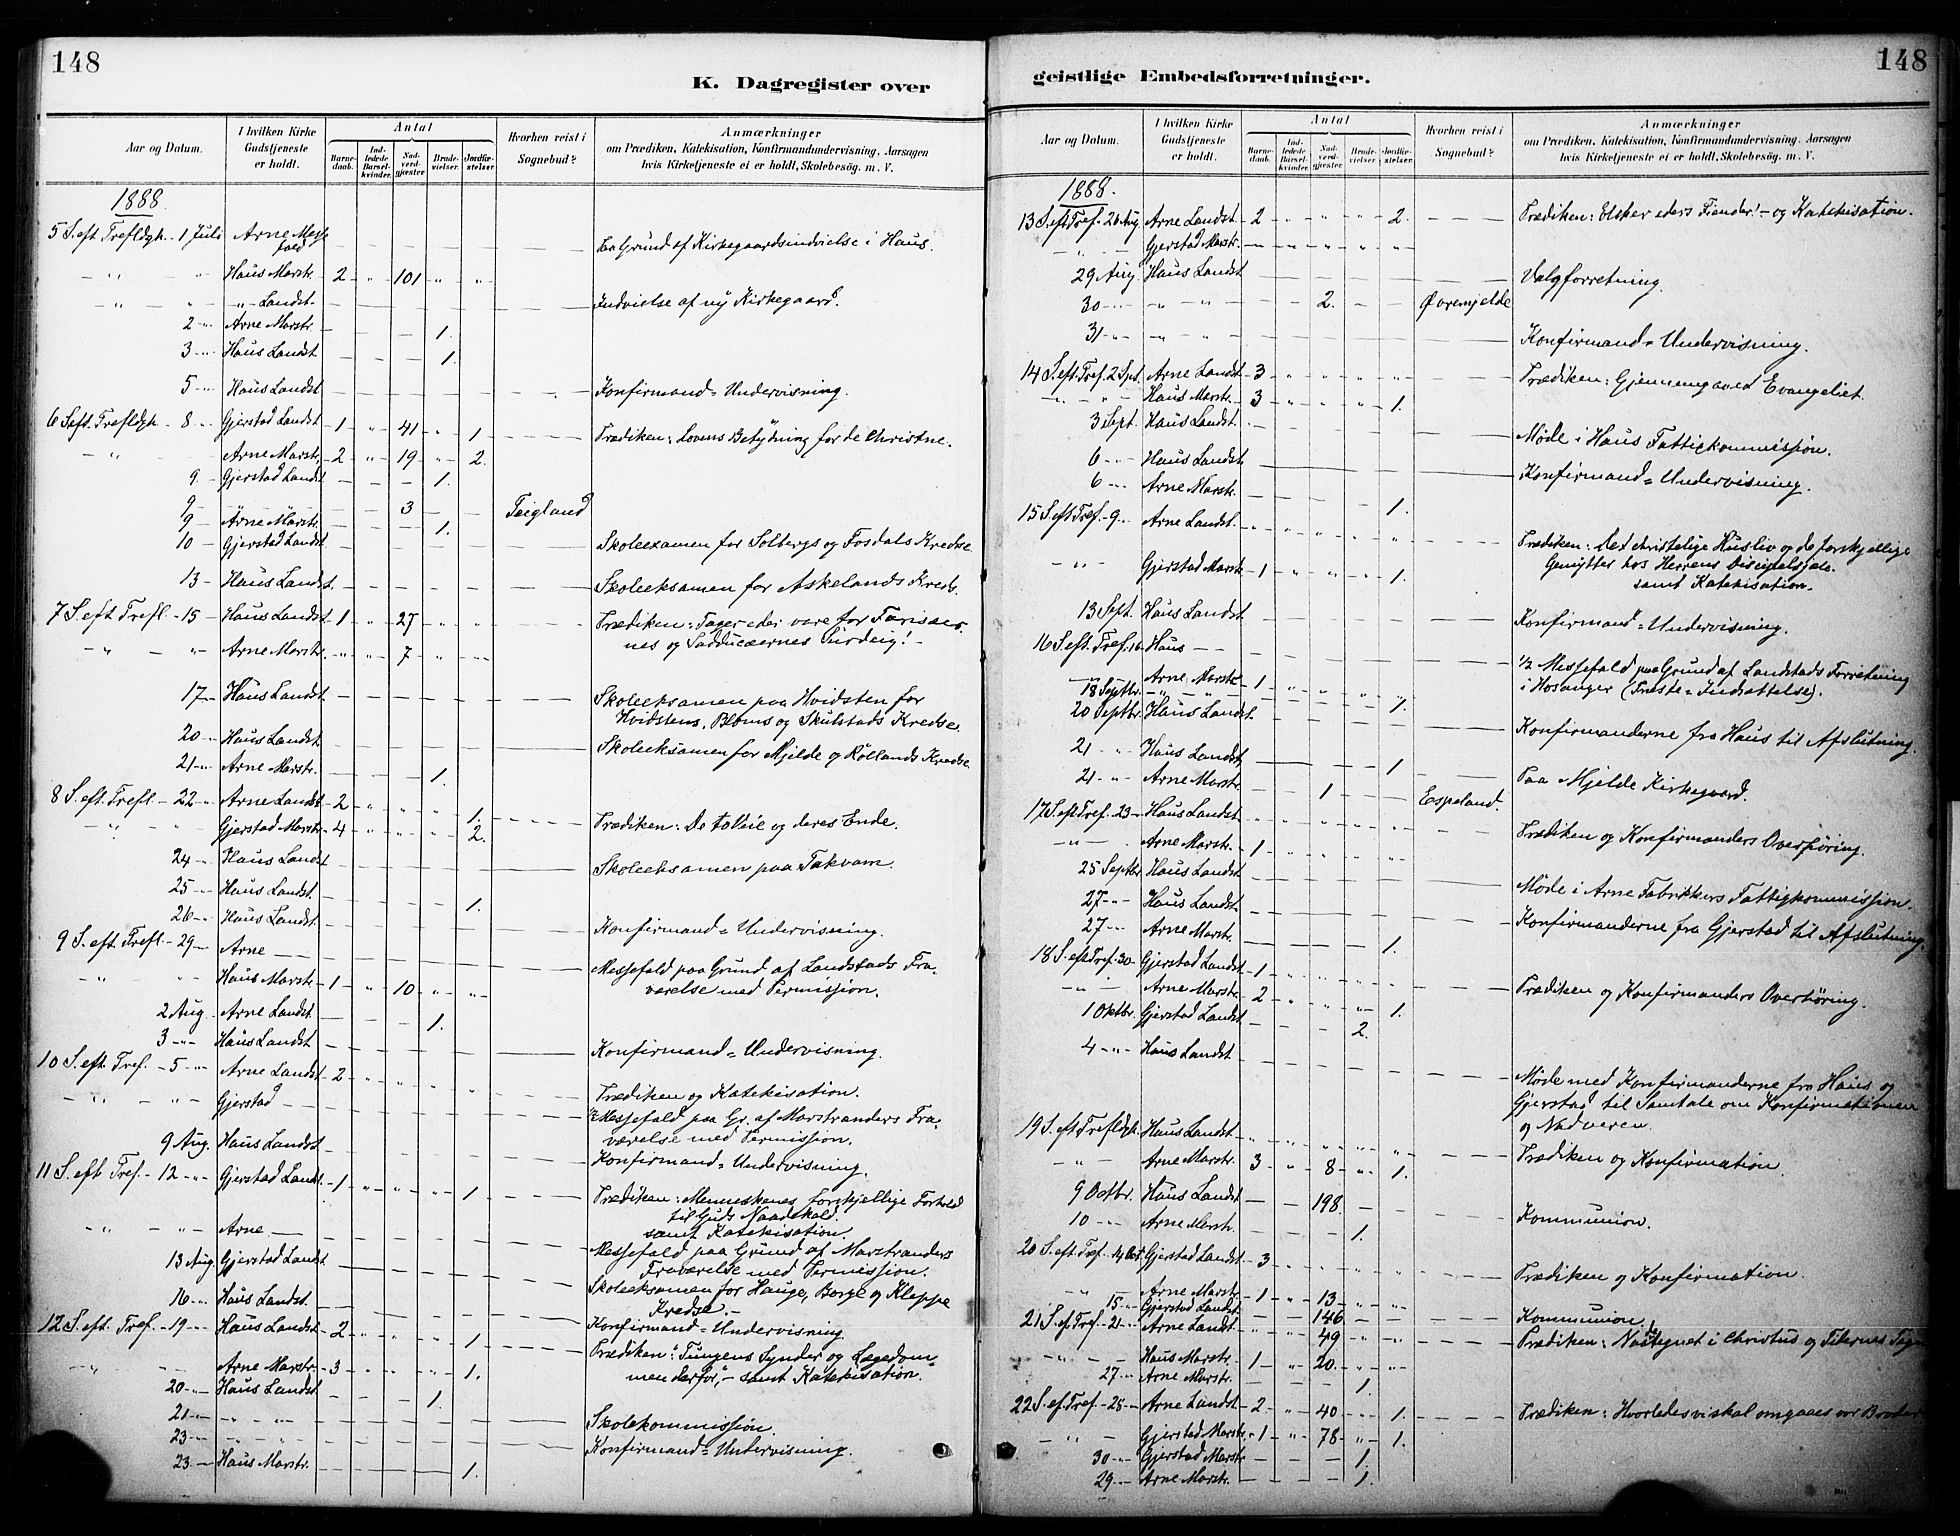 148
K. Dagregister over
Aar og Datum.
I hvilken Kirke Gudstjeneste er holdt.
Antal
Barnedaab.
Indledede Barselkvinder.
Nadverdgjester
Brudevielser.
Jordfæstelser.
Hvorhen reist i Sognebud?
Anmærkninger
om Prædiken, Katekisation, Konfirmandundervisning, Aarsagen
hvis Kirketjeneste ei er holdt, Skolebesøg. m. V.
1888.
5 S. eft Trefldgh. - 1 Juli Arne Messefald Paa Grund af Kirkegaardsindvielse i Haus.
- " - " Haus Marstr. 2 " 101 " "
- " " - " - Landst. Indvielse af ny Kirkegaard.
2 - " - Arne Marstr. 1.
3 - " - Haus Landst 1.
5 - " - Haus Landst Konfirmand=Undervisning.
6 S. eft. Trefldgh - 8 " - Gjerstad Landst 1 " 41 " 1 Prædiken: Lovens Betydning for de Christne.
- " - Arne Marstr. 2 " 19 " 2.
9. - Gjerstad Landst 1.
9 - 3 Teigland
9 - Arne Marstr. 1.
10 - Gjerstad Landst Skoleexamen for Solbergs og Fosdals Kredse
13 - Haus Landst. Skoleeksamen for Askelands Kreds.
7 S. eft Trefl - 15 - Haus Landst 1 " 27 " " Prædiken: Tager eder vare for Farisæer-
nes og Sadducæernes Surdeig! -
- " - " - Arne Marstr. " " 7 " -
17 - Haus Landst Skoleeksamen paa Hvidsten for
Hvidstens, Bloms og Skulstads Kredse.
20 - Haus Landst Skoleeksamen for Mjelde og Rollands Kredse
21 - " Arne Marstr. 1.
8 S. eft. Trefl - 22 " Arne Landst 2 " " " 1. Prædiken: De to Veie og deres Ende.
- " " Gjerstad Marstr 4 " " " 2.
24 - Haus Landst Skoleeksamen paa Takvam.
25 - Haus Landst. 1.
26 - " Haus Landst. Konfirmand=Undervisning.
9 S. eft Trefl - 29 - Arne Messefald paa Grund af Landstads Fra-
værelse med Permission.
" " - Haus Marstr 1 " 10 " "
2 Aug. Arne Landst. 1.
3 - " - Haus Landst Konfirmand=Undervisning.
10 S. eft. Tref. - 5 " - Arne Landst 2 " " " " Prædiken og Katekisation.
- " - " - Gjerstad Messefald paa Gr. af Marstranders Fra-
værelse med Permission.
9 Aug. Haus Landst Konfirmand=Undervisning.
11 S. eft Tref - 12 - " Gjerstad Landst. 1 " " " 1 Prædiken: Menneskenes forskjellige Forhold
til Guds Naadskald.
samt Katekisation.
" - " - Arne Messefald paa Grund af Marstranders
Fraværelse med Permission.
13 Aug. Gjerstad Landst Skoleeksamen for Hauge, Borge og Kleppe
Kredse. -
16 - " Haus Landst. Konfirmand=Undervisning
12 S. eft. Tref. - 19 - " Haus Landst 2 " " " 1 Prædiken: "Tungens Synder og Lægedom-
men derfor," - samt Katekisation.
" " Arne Marstr. 3 " " " 1.
20 - " Haus Landst. 1.
21 - " - " - " Skolekommission.
23 - " - " Konfirmand=Undervisning.
23. - Haus Marstr. 1.
148
geistlige Embedsforretninger.
Aar og Datum.
I hvilken Kirke Gudstjeneste er holdt.
Antal
Barnedaab.
Indledede Barselkvinder.
Nadverdgjester.
Brudevielser.
Jordfæstelser.
Hvorhen reist i Sognebud?
Anmærkninger
om Prædiken, Katekisation, Konfirmandundervisning, Aarsagen
hvis Kirketjeneste ei er holdt, Skolebesøg. m. V.
1888.
13 S. eft Tref. - 26 Aug. Arne Landst. 2 " " " 2. Prædiken: Elsker eders Fiender! - og Katekisation.
- " - Gjerstad Marstr.
29 Aug Haus Landst Valgforretning.
30 - " - " - " 2. Øvremjelde
31 - " - " - " Konfirmand=Undervisning.
14 S. eft. Tref. 2 Spt. Arne Landst 3 " " " " Prædiken: Gjennemgaaed Evangeliet.
- " - " Haus Marstr. 3 " " " 1.
3 Sept. Haus Landst. Møde i Haus Fattigkommission.
6 - " Haus Landst. Konfirmand=Undervisning.
6 - " Arne Marstr. 1.
15 S. eft Tref. - 9 " Arne Landst. " " " " " Prædiken: Det christelige Husliv og de forskjellige
Gemytter hos Herrens Discipelsjæle.
samt Katekisation.
- " - Gjerstad Marstr 1 " " " 1.
13 Sept. Haus Landst Konfirmand=Undervisning.
16 S. eft. Tref. 16 - Haus - - ½ Messefald paa Grund af Landstads Forretning
i Hosanger (Præste=Indsættelse).
- " Arne Marstr 1 " " " "
18 Septbr. - " - " - " 1.
20 Septbr. Haus Landst. Konfirmanderne fra Haus til Afslutning.
21 " Haus Landst. 1 Paa Mjelde Kirkegaard.
21 - " Arne Marstr. 1 Espeland.
17 S. eft Tref. - 23 - Haus Landst. Prædiken og Konfirmanders Overhøring.
- " - Arne Marstr. 1 " " " "
25 Septbr Haus Landst Møde i Arne Fabrikkers Fattigkommission.
27 - " Haus Landst. Konfirmanderne fra Gjerstad til Afslutning.
27 - " Arne Marstr. 1.
18 S. eft Tref. 30 - Gjerstad Landst 1 " " " " Prædiken og Konfirmanders Overhøring.
- " - Arne Marstr. 2 " " " 1.
1 Oktbr. Gjerstad Landst 2.
4 - " Haus Landst Møde med Konfirmanderne fra Haus og
Gjerstad til Samtale om Konfirmationen
og Nadveren.
19 S. eft Trefldgh. Haus Landst. " " " " " Prædiken og Konfirmation
- " - Arne Marstr. 3 " 8 " 1.
9 Octbr. Haus Landst 198. Kommunion.
10 - " Arne Marstr. 1.
20 S. eft Tref. - 14 Oct. Gjerstad Landst. 3 " " " " Prædiken og Konfirmation.
" Arne Marstr. 1 " 13 " "
15 - " Gjerstad Landst. 146 Kommunion.
21 S. ef. Tref - 21 - " Arne Landst. " " 49 " " Prædiken: Naadetegnet i Christus og Tidernes Tegn
- " - Haus Marstr. 1 " 20. " "
27 - " Arne Marstr. 1.
22 S. ef. Tref - 28 - " Arne Landst. 2 " 40 " 1. Prædiken: Hvorledes vi skal omgaaes vor Broder
- " - " Gjerstad Marstr. 1 " 78 " 1.
30 - " Gjerstad Marstr 1.
29 - Arne Marstr. 1.